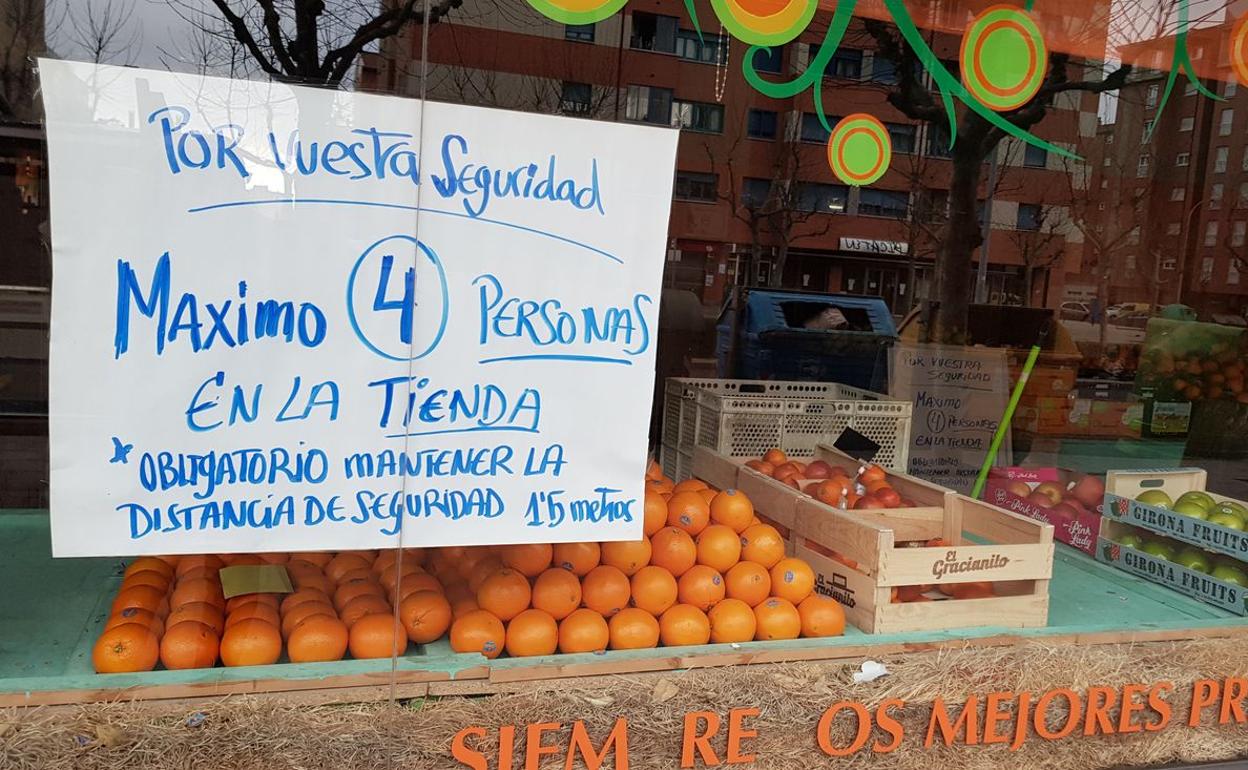 POR VUESTRA SEGURIDAD
MAXIMO 4 PERSONAS
EN LA TIENDA
* OBLIGATORIO MANTENER LA
DISTANCIA DE SEGURIDAD 1'5 metros
ALCATEN
POR VUESTRA
SEGURIDAD
MAXIMO
4 PERSONAS
EN LA TIENDA
OBLIGATORIO
MANTENER
El Gracianito
El Gracianito
Pink Lady
Pink Lady
GIRONA FRUITS
GIRONA FRUITS
SIEM RE OS MEJORES PR